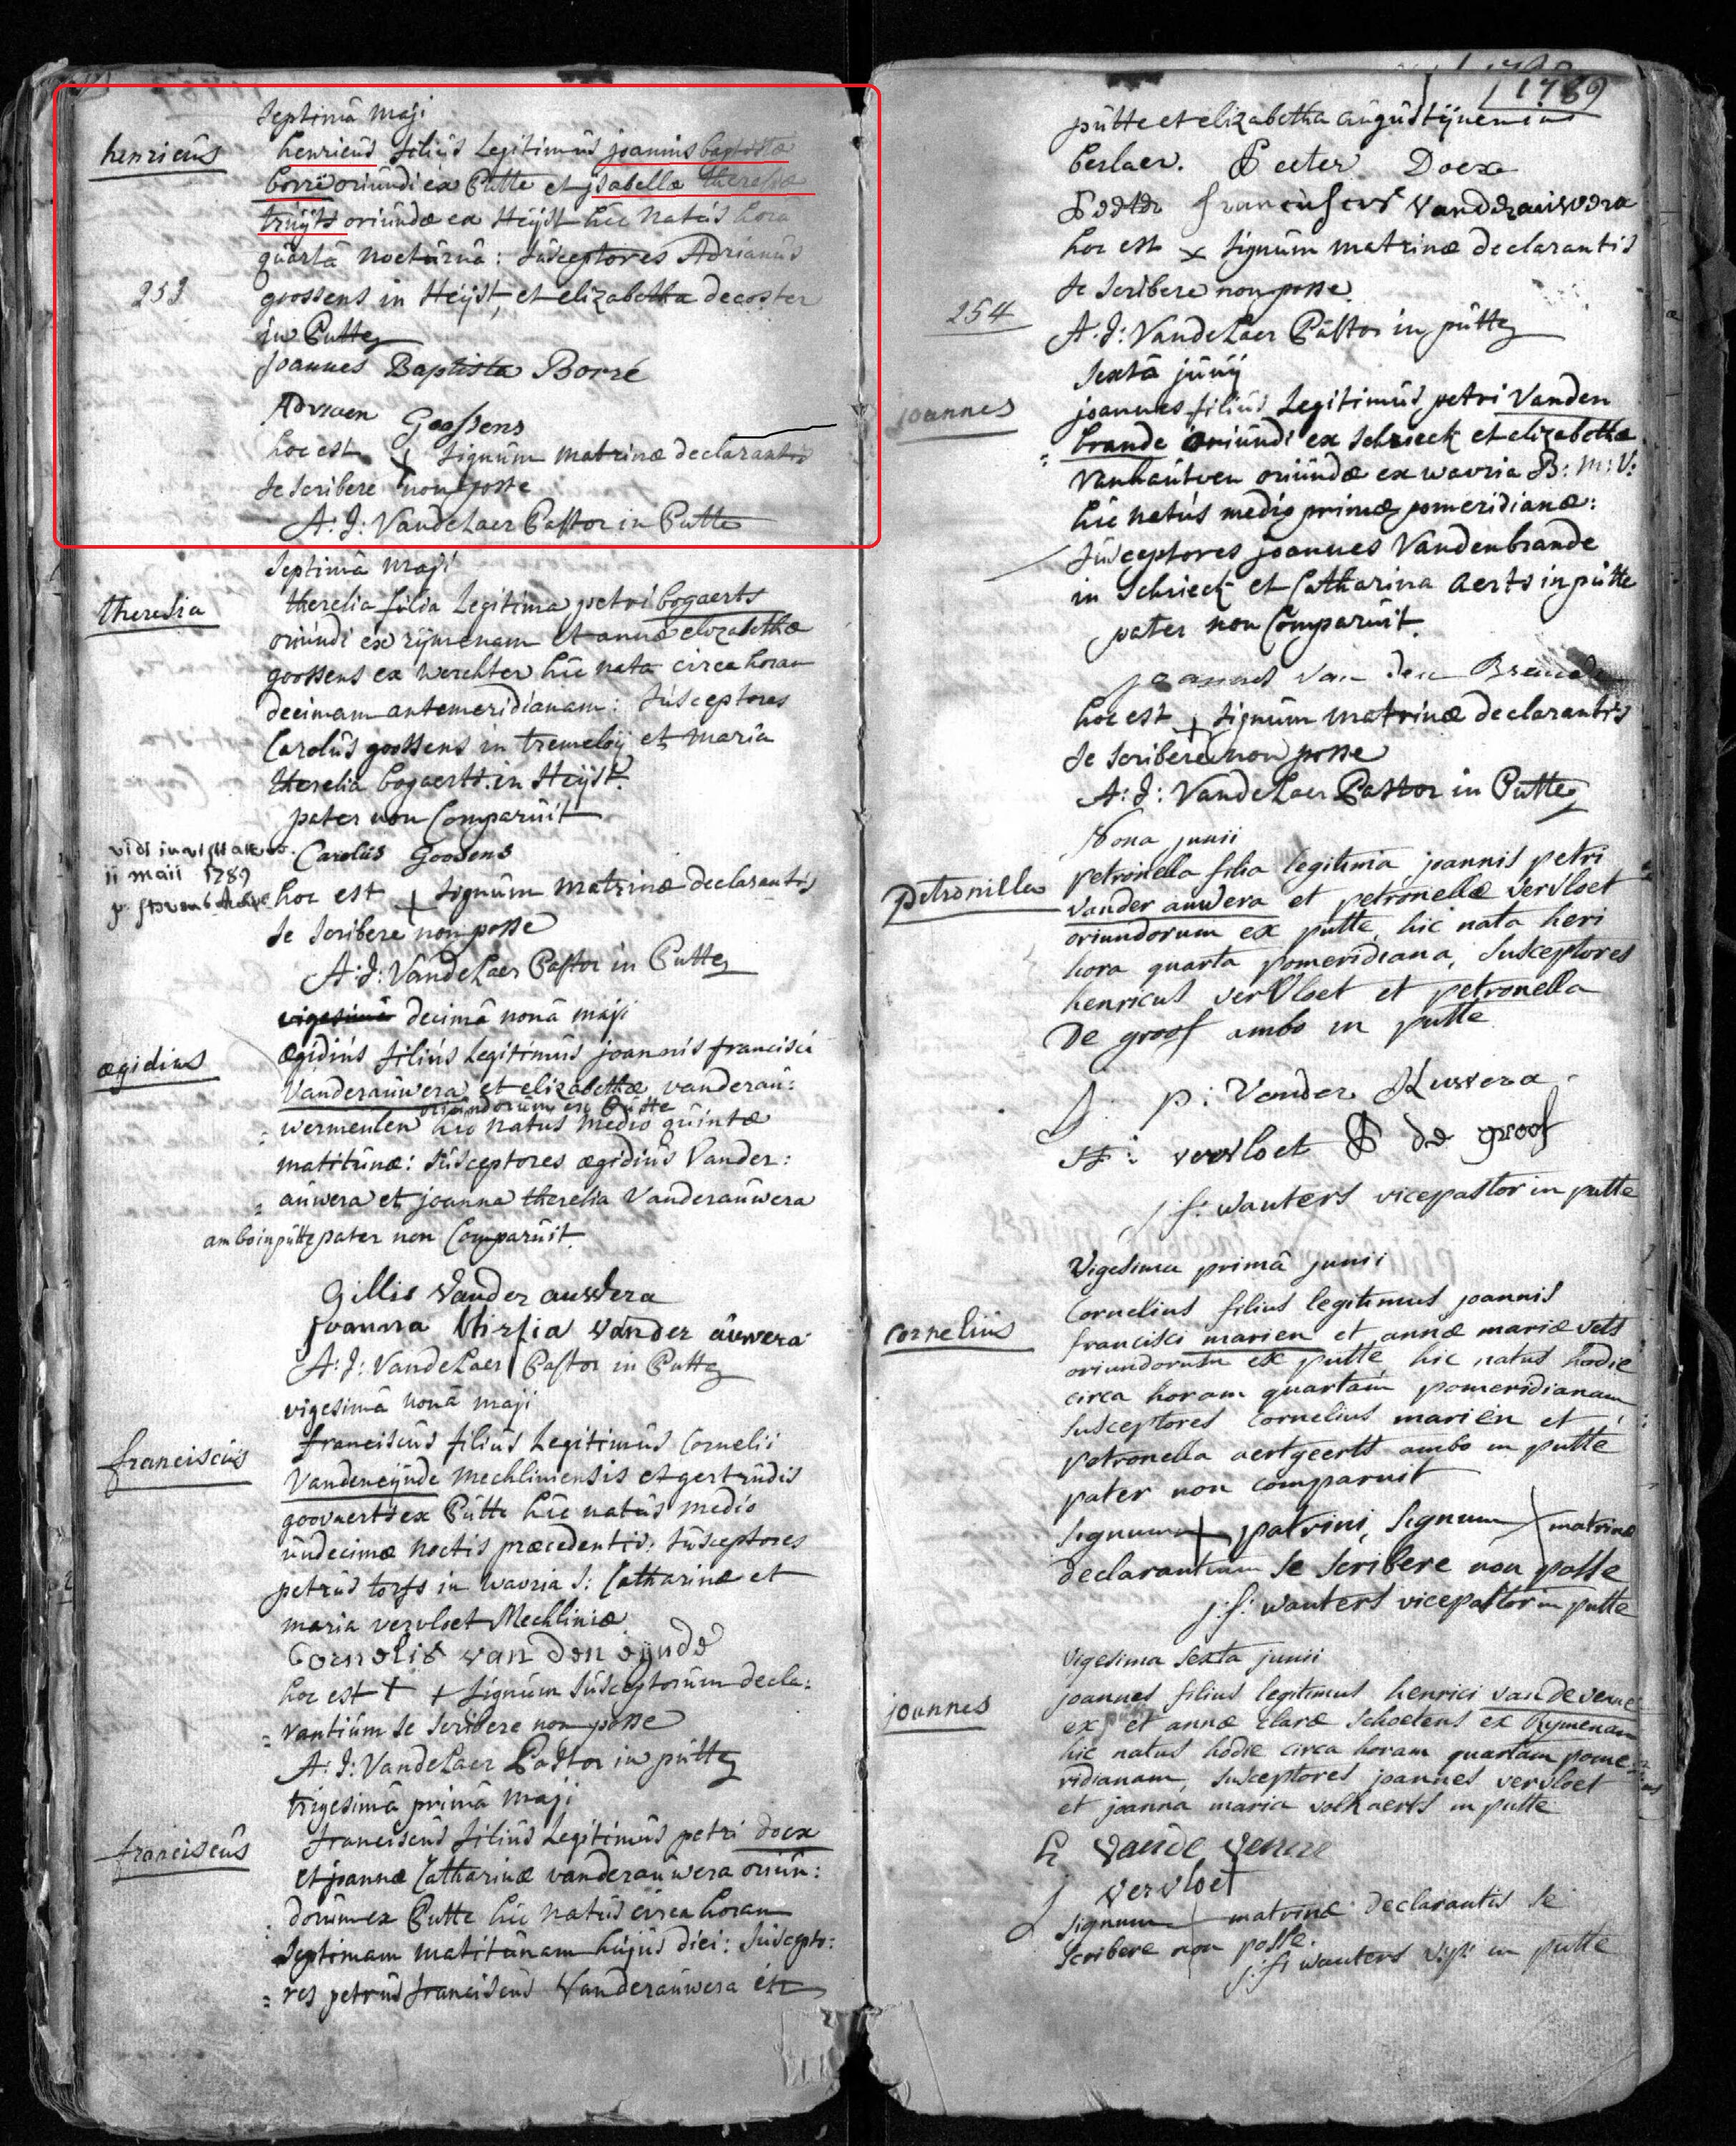 septimâ maji
henricûs
henricus filiûs Legitimûs joannis baptistæ
borré oriûndi ex Pûtte et ysabellæ theresiæ
trúijts oriûndæ ex Heijst hic natûs horâ
qûartâ noctûrnâ: Sûsceptores Adrianûs
253
goossens in Heijst, et elizabetha decoster
in Putte
joannes Baptista Borré
Adriaen Goossens
hoc est + signûm matrinæ declarantis
se scribere non posse
A: J: VandeLaer Pastor in Putte
septimâ maji
theresia
theresia filia Legitima petri bogaerts
oriûndi ex rijmenam et annæ elizabethæ
goossens ex werchter hic nata circa horam
decimam antemeridianam: sûsceptores
Carolûs goossens in tremeloij et maria
theresia bogaerts in Heijst.
pater non Comparûit
vidi in
ii maii 1789
Carolûs Goosens
hoc est + signûm matrinæ declarantis
se scribere non posse
A: J: VandeLaer Pastor in Putte
vigesimâ decimâ nonâ maji
ægidius
ægidiûs filiûs Legitimûs joannis francisci
Vanderaûwera et elizabethæ vanderaû:
oriûndorûm ex Pûtte
wermeulen hic natus medio qûintæ
matitûnæ: sûsceptores ægidiûs Vander:
= aûwera et joanna theresia Vanderaûwera
ambo in pûtte pater non Comparûit
Gillis Vander auwera
Joanna tirsia vander auwera
A: J: VandeLaer Pastor in Putte
vigesimâ nonâ maji
franciscûs
franciscûs filiûs Legitimûs Cornelii
Vandeneijnde Mechliniensis et gertrûdis
goovaerts ex Pûtte hic natûs medio
ûndecimæ noctis præcedentis: sûsceptores
petrûs torfs in wavria S: Catharinæ et
maria vervloet Mechliniæ
Cornelis van den eynde
hoc est + + signûm sûsceptorûm decla:
= rantiûm se scribere non posse
A: J: VandeLaer Pastor in pûtte
trigesimâ primâ maji
franciscûs
franciscûs filiûs Legitimûs petri docx
et joannæ Catharinæ vanderaûwera oriûn:
dorûm ex Putte hic natûs circa horam
septimam matitûnam hûjûs diei: sûscepto:
= res petrûs franciscûs Vanderaûwera in
1789
pûtte et elizabetha aûgûstijnen in
berlaer. Peeter Docx
Peeter francuscus vanderauwera
hoc est x signûm matrinæ declarantis
se scribere non posse
254
A: J: VandeLaer Pastor in pûtte
sextâ jûnij
joannes
joannes filiûs Legitimûs petri Vanden
= brande oriûndi ex schrieck et elizabethæ
Vanhoûtven oriûndæ ex wavria B: M: V:
hic natûs mediâ primæ pomeridianæ:
sûsceptores joannes Vandenbrande
in schrieck et Catharina Aerts in pûtte
pater non Comparûit
joannes Van den Brande
hoc est + signûm matrinæ declarantis
se scribere non posse
A: J: VandeLaer Pastor in Putte
Nona junii
petronilla
petronella filia legitima joannis petri
vander auwera et petronellæ vervloet
oriundorum ex putte, hic nata heri
hora quarta pomeridiana, susceptores
henricus vervloet et petronella
De groof ambo in putte
J: p: Vander Auwera
H: vervloet P de groof
j: f: wauters vicepastor in putte
Vigesima primâ junii
cornelius
Cornelius filius legitimus joannis
francisci marien et annæ mariæ vets
oriundorum ex putte, hic natus hodie
circa horam quartam pomeridianam
susceptores cornelius marien et
petronella aertgeerts ambo in putte
pater non comparuit
signum + patrini, signum + matrinæ
declarantium se scribere non posse
j: f: wauters vicepastor in putte
vigesima sexta junii
joannes
joannes filius legitimus henrici van de venne
ex putte et annæ claræ schoetens ex Rymenam
hic natus hodie circa horam quartam pome
ridianam, susceptores joannes vervloet
et joanna maria volkaerts in putte
h vande venne
J vervloet
signum + matrinæ declarantis se
scribere non posse.
j: f: wauters in putte